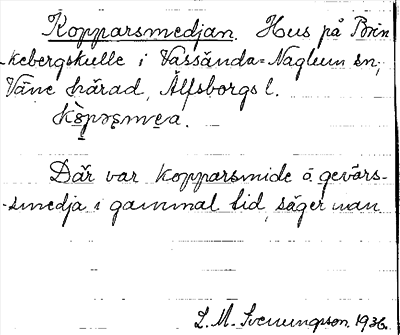 Kopparsmedjan. Hus på Brin
-kebergskulle i Vassända-Naglum sn,
Väne härad, Älfsborgs l.
Där var kopparsmide å gevärs-
-smedja i gammal tid, säger man
L. M. Svenungsson 1936.